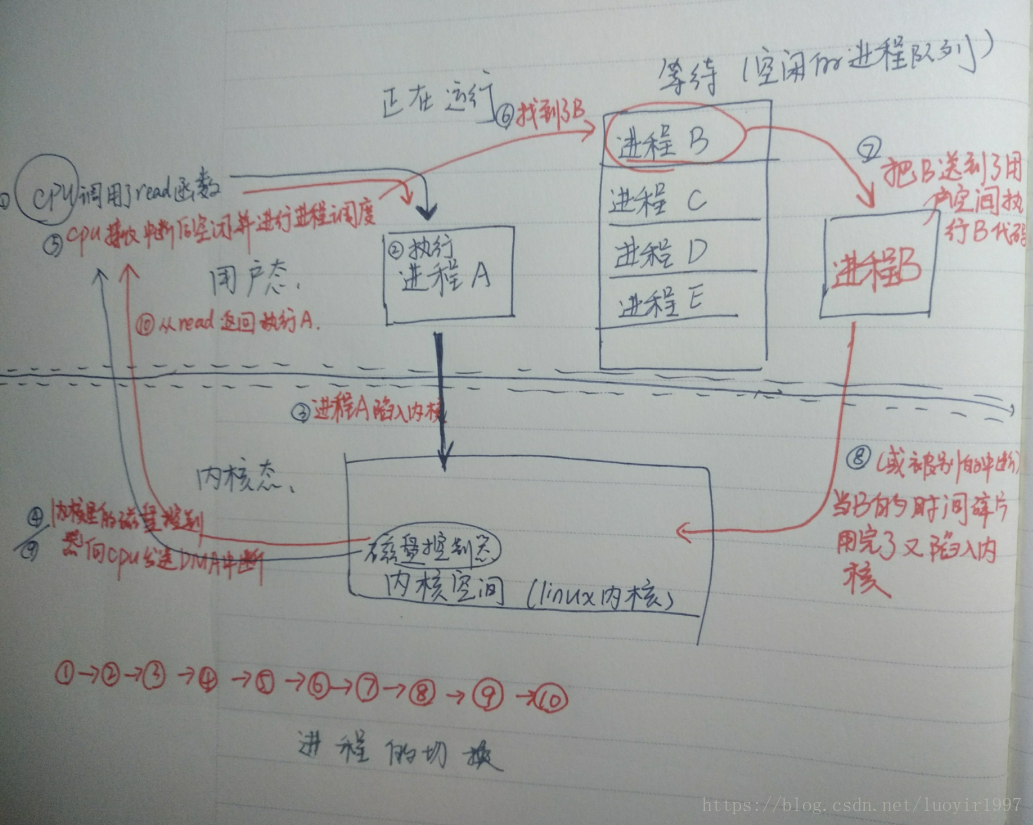 等待（空闲的进程队列）
正在运行
⑥找到了B
进程 B
进程 C
进程 D
进程 E
⑦
把B送到了用
户空间执
行B代码
进程B
① CPU调用了read函数
⑤ CPU接收中断后空闲并进行进程调度
②执行
进程 A
用户态、
⑩从read返回执行A.
③进程A陷入内核
内核态、
④ 内核里的磁盘控制
⑨ 器向CPU发送DMA中断
磁盘控制态
内核空间 （linux内核）
⑧（或被别的中断）
当B的时间碎片
用完了又陷入内
核
①→②→③→④→⑤→⑥→⑦→⑧→⑨→⑩
进程的切换
https://blog.csdn.net/luoyir1997